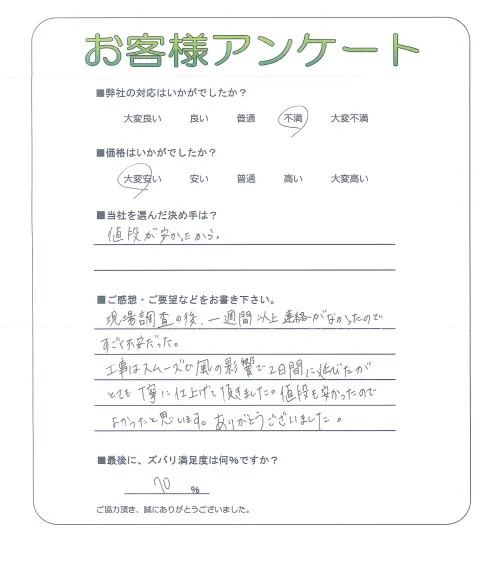 お客様アンケート
■弊社の対応はいかがでしたか？
大変良い 良い 普通 不満 大変不満
■価格はいかがでしたか？
大変安い 安い 普通 高い 大変高い
■当社を選んだ決め手は？
値段が安かったから。
■ご感想・ご要望などをお書き下さい。
現場調査の後、一週間以上連絡がなかったので
すごく不安だった。
工事はスムーズで風の影響で2日間に延びたが
とても丁寧に仕上げて頂きました。値段も安かったので
よかったと思います。ありがとうございました。
■最後に、ズバリ満足度は何%ですか？
70 %
ご協力頂き、誠にありがとうございました。